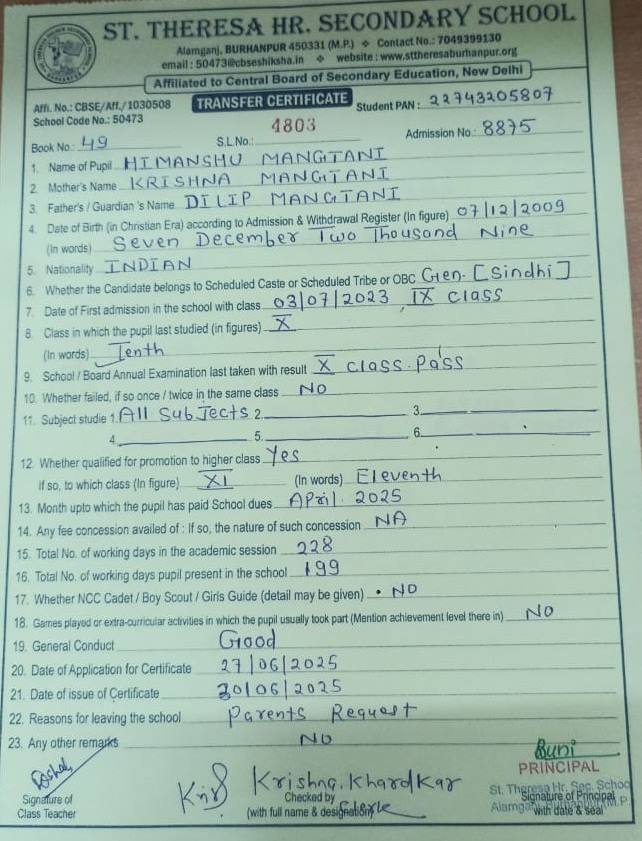 ST. THERESA HR. SECONDARY SCHOOL
Alamganj, BURHANPUR 450331 (M.P.) ❖ Contact No.: 7049399130
email : 50473@cbseshiksha.in ❖ website : www.sttheresaburhanpur.org
Affiliated to Central Board of Secondary Education, New Delhi
Affi. No.: CBSE/Aff./1030508 TRANSFER CERTIFICATE Student PAN : 22743205807
School Code No.: 50473
Book No.: 49 S.L.No.: 4803 Admission No.: 8875
1. Name of Pupil HIMANSHU MANGTANI
2. Mother's Name KRISHNA MANGTANI
3. Father's / Guardian 's Name DILIP MANGTANI
4. Date of Birth (in Christian Era) according to Admission & Withdrawal Register (In figure) 07/12/2009
(In words) Seven December Two Thousand Nine
5. Nationality INDIAN
6. Whether the Candidate belongs to Scheduled Caste or Scheduled Tribe or OBC Gen. [Sindhi]
7. Date of First admission in the school with class 03/07/2023, IX class
8. Class in which the pupil last studied (in figures) X
(In words) Tenth
9. School / Board Annual Examination last taken with result X class. Pass
10. Whether failed, if so once / twice in the same class NO
11. Subject studie 1. All Subjects 2. 3.
4. 5. 6.
12. Whether qualified for promotion to higher class Yes
If so, to which class (In figure) XI (In words) Eleventh
13. Month upto which the pupil has paid School dues April. 2025
14. Any fee concession availed of : If so, the nature of such concession NA
15. Total No. of working days in the academic session 228
16. Total No. of working days pupil present in the school 199
17. Whether NCC Cadet / Boy Scout / Girls Guide (detail may be given) NO
18. Games played or extra-curricular activities in which the pupil usually took part (Mention achievement level there in) NO
19. General Conduct Good
20. Date of Application for Certificate 27/06/2025
21. Date of issue of Certificate 30/06/2025
22. Reasons for leaving the school Parents Request
23. Any other remarks NO
PRINCIPAL
Krishna. Khardkar
St. Theresa Hr. Sec. School
Signature of Class Teacher
Checked by
(with full name & designation)
Signature of Principal
with date & seal